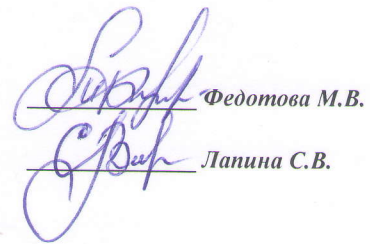 Федотова М.В.
Лапина С.В.